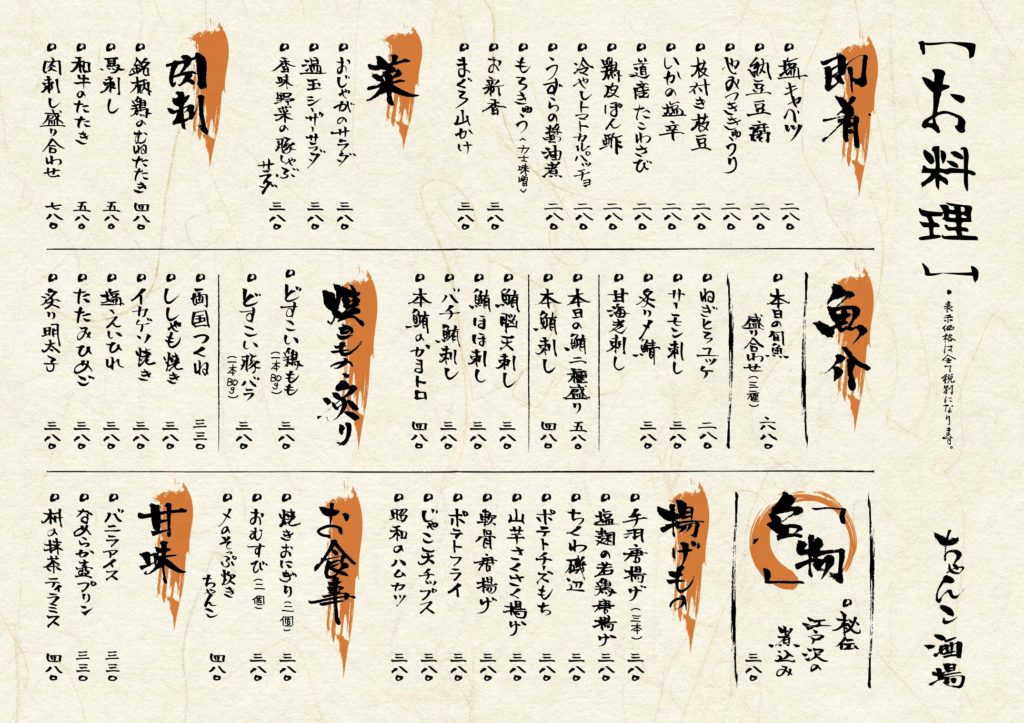 【お料理】
・表示価格は全て税別になります。
ちゃんこ酒場
即肴
塩キャベツ 二八〇
納豆豆腐 二八〇
やみつききゅうり 二八〇
枝付き枝豆 二八〇
いかの塩辛 二八〇
道産たこわさび 二八〇
鶏皮ぽん酢 二八〇
冷やしトマトカルパッチョ 二八〇
うずらの醤油煮 二八〇
もろきゅう(力士味噌)
お新香 三八〇
まぐろ山かけ 三八〇
菜
おじゃがのサラダ 三八〇
温玉シーザーサラダ 三八〇
香味野菜の豚しゃぶ
サラダ 三八〇
肉刺
銘柄鶏のむねたたき 四八〇
馬刺し 五八〇
和牛のたたき 五八〇
肉刺し盛り合わせ 七八〇
魚介
本日の旬魚
盛り合わせ(三種) 六八〇
ねぎとろユッケ 二八〇
サーモン刺し 三八〇
炙り〆鯖 三八〇
甘海老刺し
本日の鮪二種盛り 五八〇
本鮪刺し 四八〇
鮪脳天刺し 三八〇
鮪ほほ刺し 三八〇
バチ鮪刺し 三八〇
本鮪のガリトロ 四八〇
焼きもの 炙り
どすこい鶏もも
(一本80g) 三八〇
どすこい豚バラ
(一本80g) 三八〇
両国つくね 三三〇
ししゃも焼き 三八〇
イカゲソ焼き 三八〇
塩えいひれ 三八〇
たたみひめご 三八〇
炙り明太子 三八〇
「名物」
秘伝
江戸沢の
煮込み 三八〇
揚げもの
手羽唐揚げ(三本) 三八〇
塩麹の若鶏唐揚げ 三八〇
ちくわ磯辺 三八〇
ポテトチーズもち 三八〇
山芋さくさく揚げ 三八〇
軟骨唐揚げ 三八〇
ポテトフライ 三八〇
じゃこ天チップス 三八〇
昭和のハムカツ 三八〇
お食事
焼きおにぎり(二個) 三八〇
おむすび(二個) 三八〇
〆のそっぷ炊き
ちゃんこ 四八〇
甘味
バニラアイス 三三〇
なめらか壺プリン 三三〇
村の抹茶ティラミス 四八〇